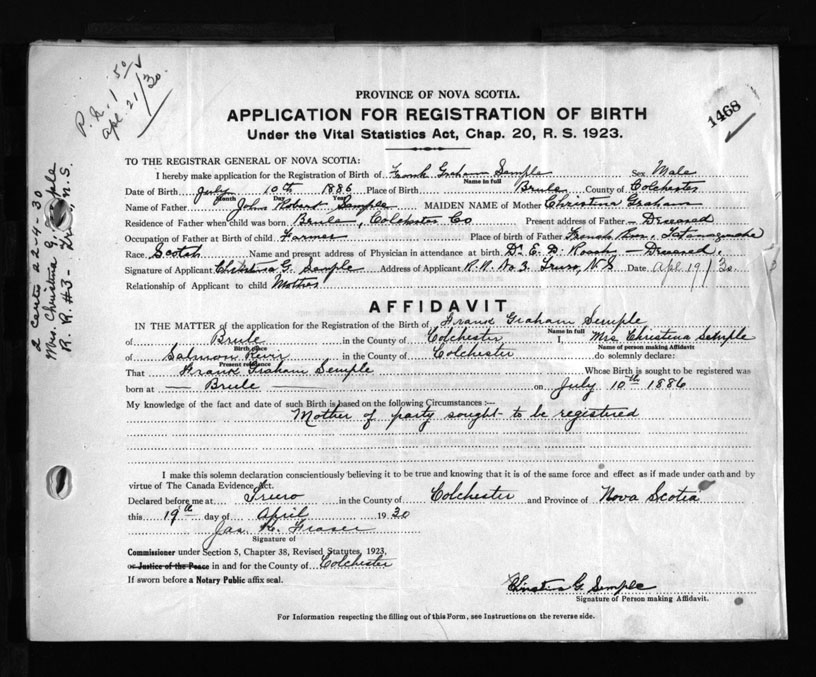 P. R. 1 50/
Apl. 21/30.
1468
PROVINCE OF NOVA SCOTIA.
APPLICATION FOR REGISTRATION OF BIRTH
Under the Vital Statistics Act, Chap. 20, R. S. 1923.
TO THE REGISTRAR GENERAL OF NOVA SCOTIA:
I hereby make application for the Registration of Birth of Frank Graham Semple Sex Male
Name in full
Date of Birth July 10th 1886 Place of Birth Brule County of Colchester
Month Day Year
Name of Father John Robert Semple MAIDEN NAME of Mother Christina Graham
Residence of Father when child was born Brule, Colchester Co Present address of Father — Deceased
Occupation of Father at Birth of child Farmer Place of birth of Father French River, Tatamagouche
Race Scotch Name and present address of Physician in attendance at birth Dr. E. D. Roach — Deceased.
Signature of Applicant Christina G. Semple Address of Applicant R. R. No 3. Truro, N. S Date Apl 19/30
Relationship of Applicant to child Mother
2 certs 22-4-30
Mrs. Christina G. Semple
R. R. #3 - Truro N. S.
AFFIDAVIT
IN THE MATTER of the application for the Registration of the Birth of Frank Graham Semple
Name in full
of Brule in the County of Colchester I, Mrs Christina Semple
Birth place Name of person making Affidavit
of Salmon River in the County of Colchester do solemnly declare:
Present residence
That Frank Graham Semple Whose Birth is sought to be registered was
born at — Brule — on July 10th 1886
My knowledge of the fact and date of such Birth is based on the following Circumstances :—
Mother of party sought to be registered
I make this solemn declaration conscientiously believing it to be true and knowing that it is of the same force and effect as if made under oath and by
virtue of The Canada Evidence Act.
Declared before me at Truro in the County of Colchester and Province of Nova Scotia
this 19th day of April 1930
Jas. K. Fraser
Signature of
Commissioner under Section 5, Chapter 38, Revised Statutes, 1923,
or Justice of the Peace in and for the County of Colchester
If sworn before a Notary Public affix seal.
Christina G. Semple
Signature of Person making Affidavit.
For Information respecting the filling out of this Form, see Instructions on the reverse side.